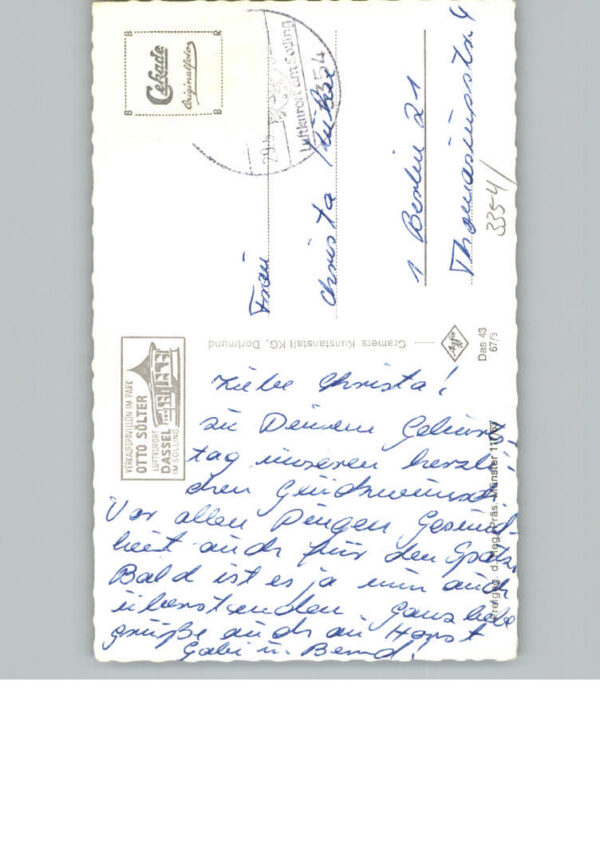 Liebe Christa!
zu Deinem Geburts-
tag unseren herzli-
chen Glückwunsch!
Vor allen Dingen Gesund-
heit auch für den Spatz.
Bald ist es ja nun auch
überstanden. Ganz liebe
Grüße auch an Horst
Gabi u. Bernd!
Frau
Christa
1 Berlin 21
Thomasiusstr. 4
3354/
Cekade
Originalfoto
B R
B B
Luftkurort am Solling
3354
VERKAUFSPAVILLON IM PARK
OTTO SÖLTER
LUFTKURORT
DASSEL
IM SOLLING
Cramers Kunstanstalt KG, Dortmund
Agfa
Das 43
67/5
Freigeg. d. Reg. Präs. Münster